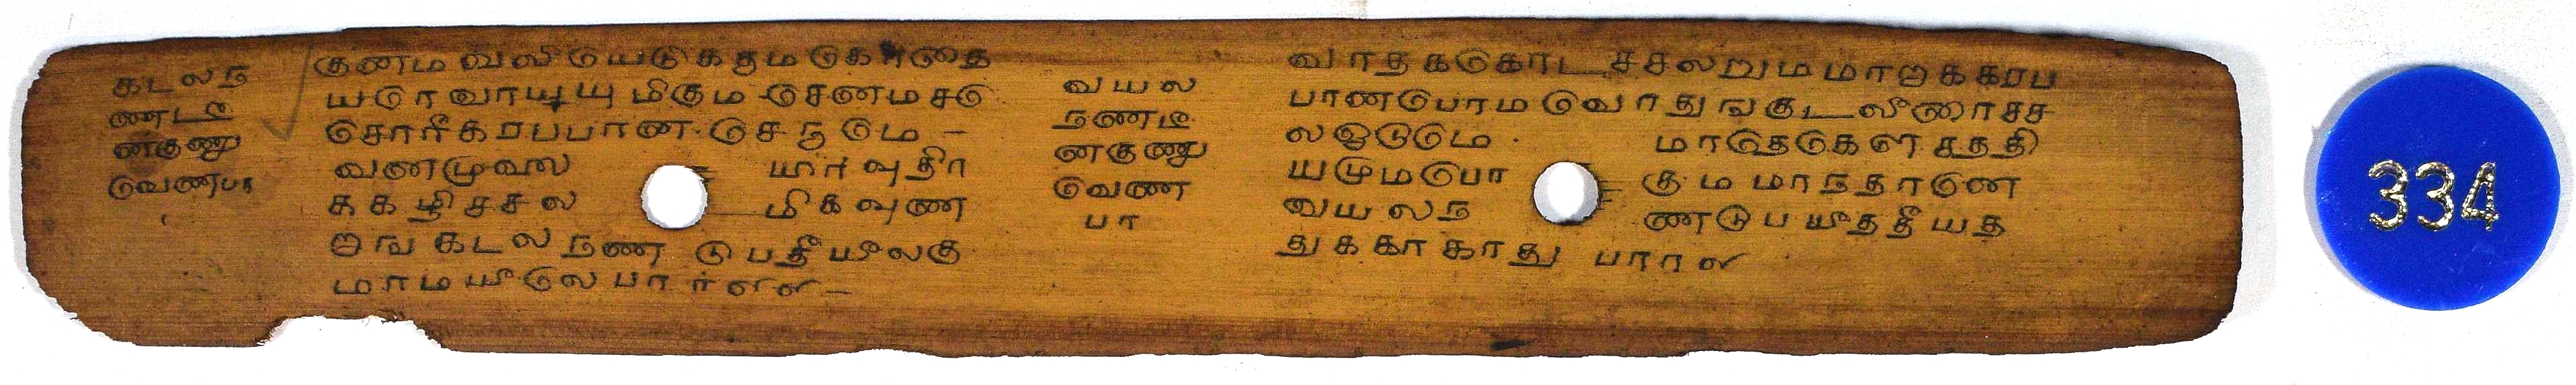 கடலந
ணடீ
னகுணு
வெணபா
குணம வலியெடுகதமடுககாதை
யரொவாயுயு மிகும செனமசெ
சொரீகரபபான செநதெம
வணமுலை யாரவுதிர
ககழிசசல மிகவுண
றஙகடலநண டுபதீயிலகு
மாமயிலெ பார
வயல
நணடீ
னகுணு
வெண
பா
வாதகடுகாடசசலறுமமாறாககரப
பானபெரமவொதுஙகுடலீரைசச
லஓடும மாதெகெளசததி
யமுமபொ கும மாநதானெ
வயலந ணடுபயிததீயத
துககாகாது பாரள
334